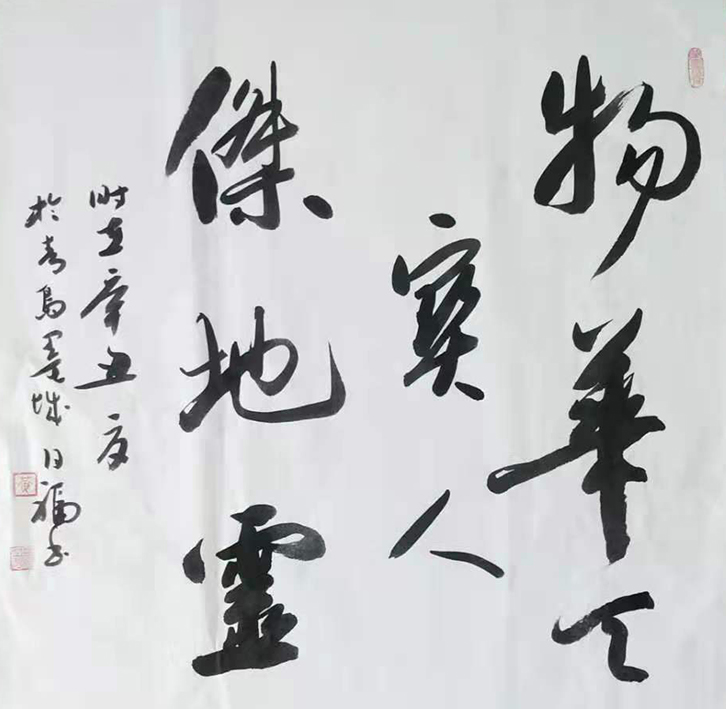 物華天
寶人
傑地靈
時在辛丑夏
於青島墨城日福書